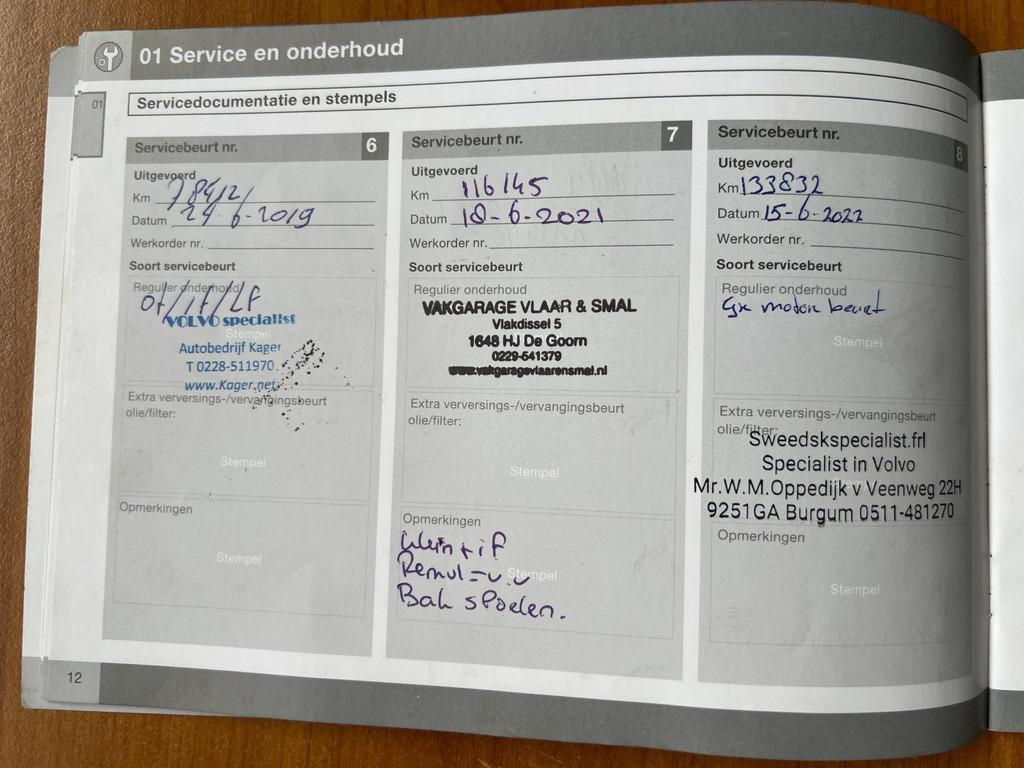 01 Service en onderhoud
01
Servicedocumentatie en stempels
Servicebeurt nr. 6
Uitgevoerd
Km
Datum 24-6-2019
Werkorder nr.
Soort servicebeurt
Regulier onderhoud
of/if/LF
VOLVO specialist
Stempel
Autobedrijf Kager
T 0228-511970
www.Kager.net
Extra verversings-/vervangingsbeurt
olie/filter:
Stempel
Opmerkingen
Stempel
Servicebeurt nr. 7
Uitgevoerd
Km 116145
Datum 18-6-2021
Werkorder nr.
Soort servicebeurt
Regulier onderhoud
VAKGARAGE VLAAR & SMAL
Vlakdissel 5
1648 HJ De Goorn
0229-541379
www.vakgaragevlaarensmal.nl
Extra verversings-/vervangingsbeurt
olie/filter:
Stempel
Opmerkingen
Klein + if
Remvl = v.v
Stempel
Bak spoelen.
Servicebeurt nr. 8
Uitgevoerd
Km 133832
Datum 15-6-2022
Werkorder nr.
Soort servicebeurt
Regulier onderhoud
motor beurt
Stempel
Extra verversings-/vervangingsbeurt
olie/filter:
Sweedskspecialist.frl
Specialist in Volvo
Mr.W.M.Oppedijk v Veenweg 22H
9251GA Burgum 0511-481270
Opmerkingen
Stempel
12